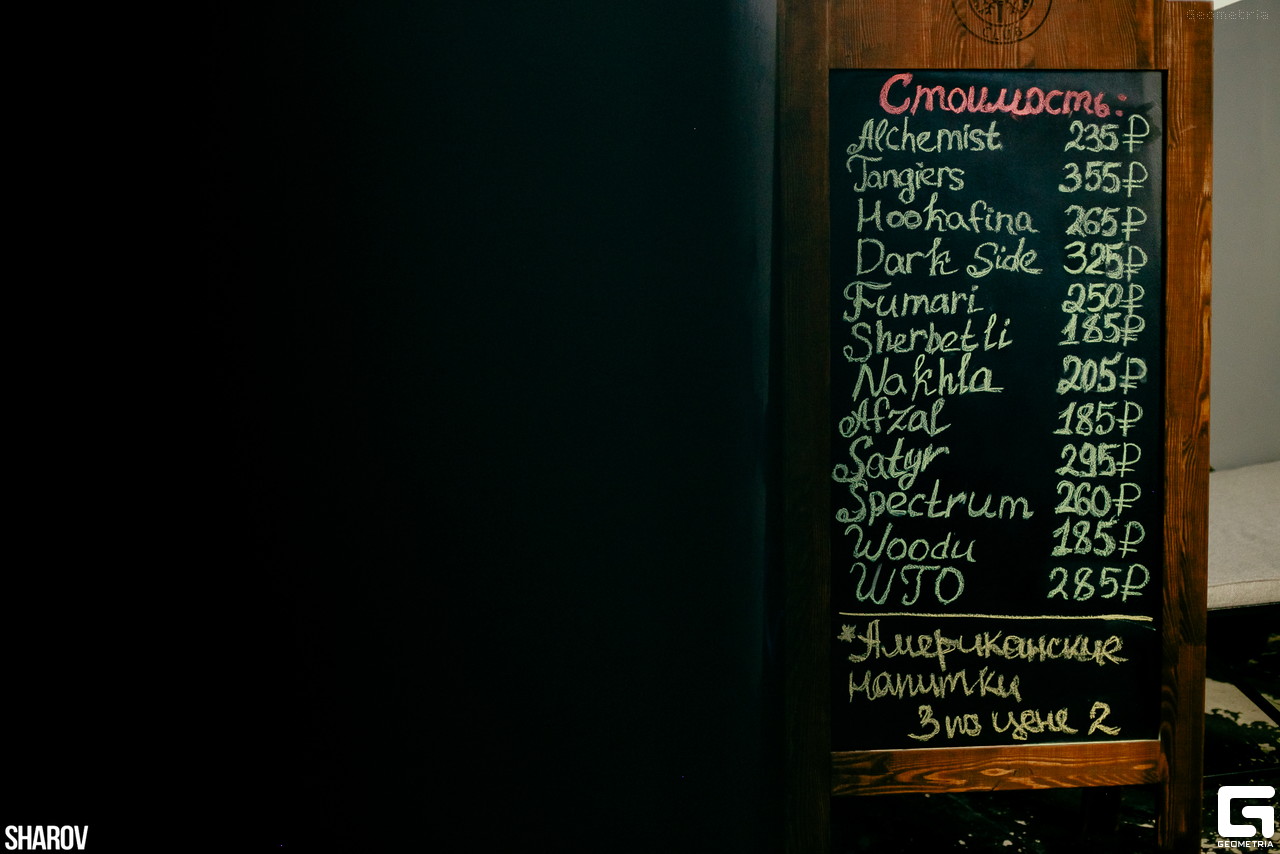 CLUB
Geometria
Стоимость:
Alchemist 235₽
Tangiers 355₽
Hookafina 265₽
Dark Side 325₽
Fumari 250₽
Sherbetli 185₽
Nakhla 205₽
Afzal 185₽
Satyr 295₽
Spectrum 260₽
Woodu 185₽
WTO 285₽
*Американские
напитки
3 по цене 2
SHAROV
GEOMETRIA